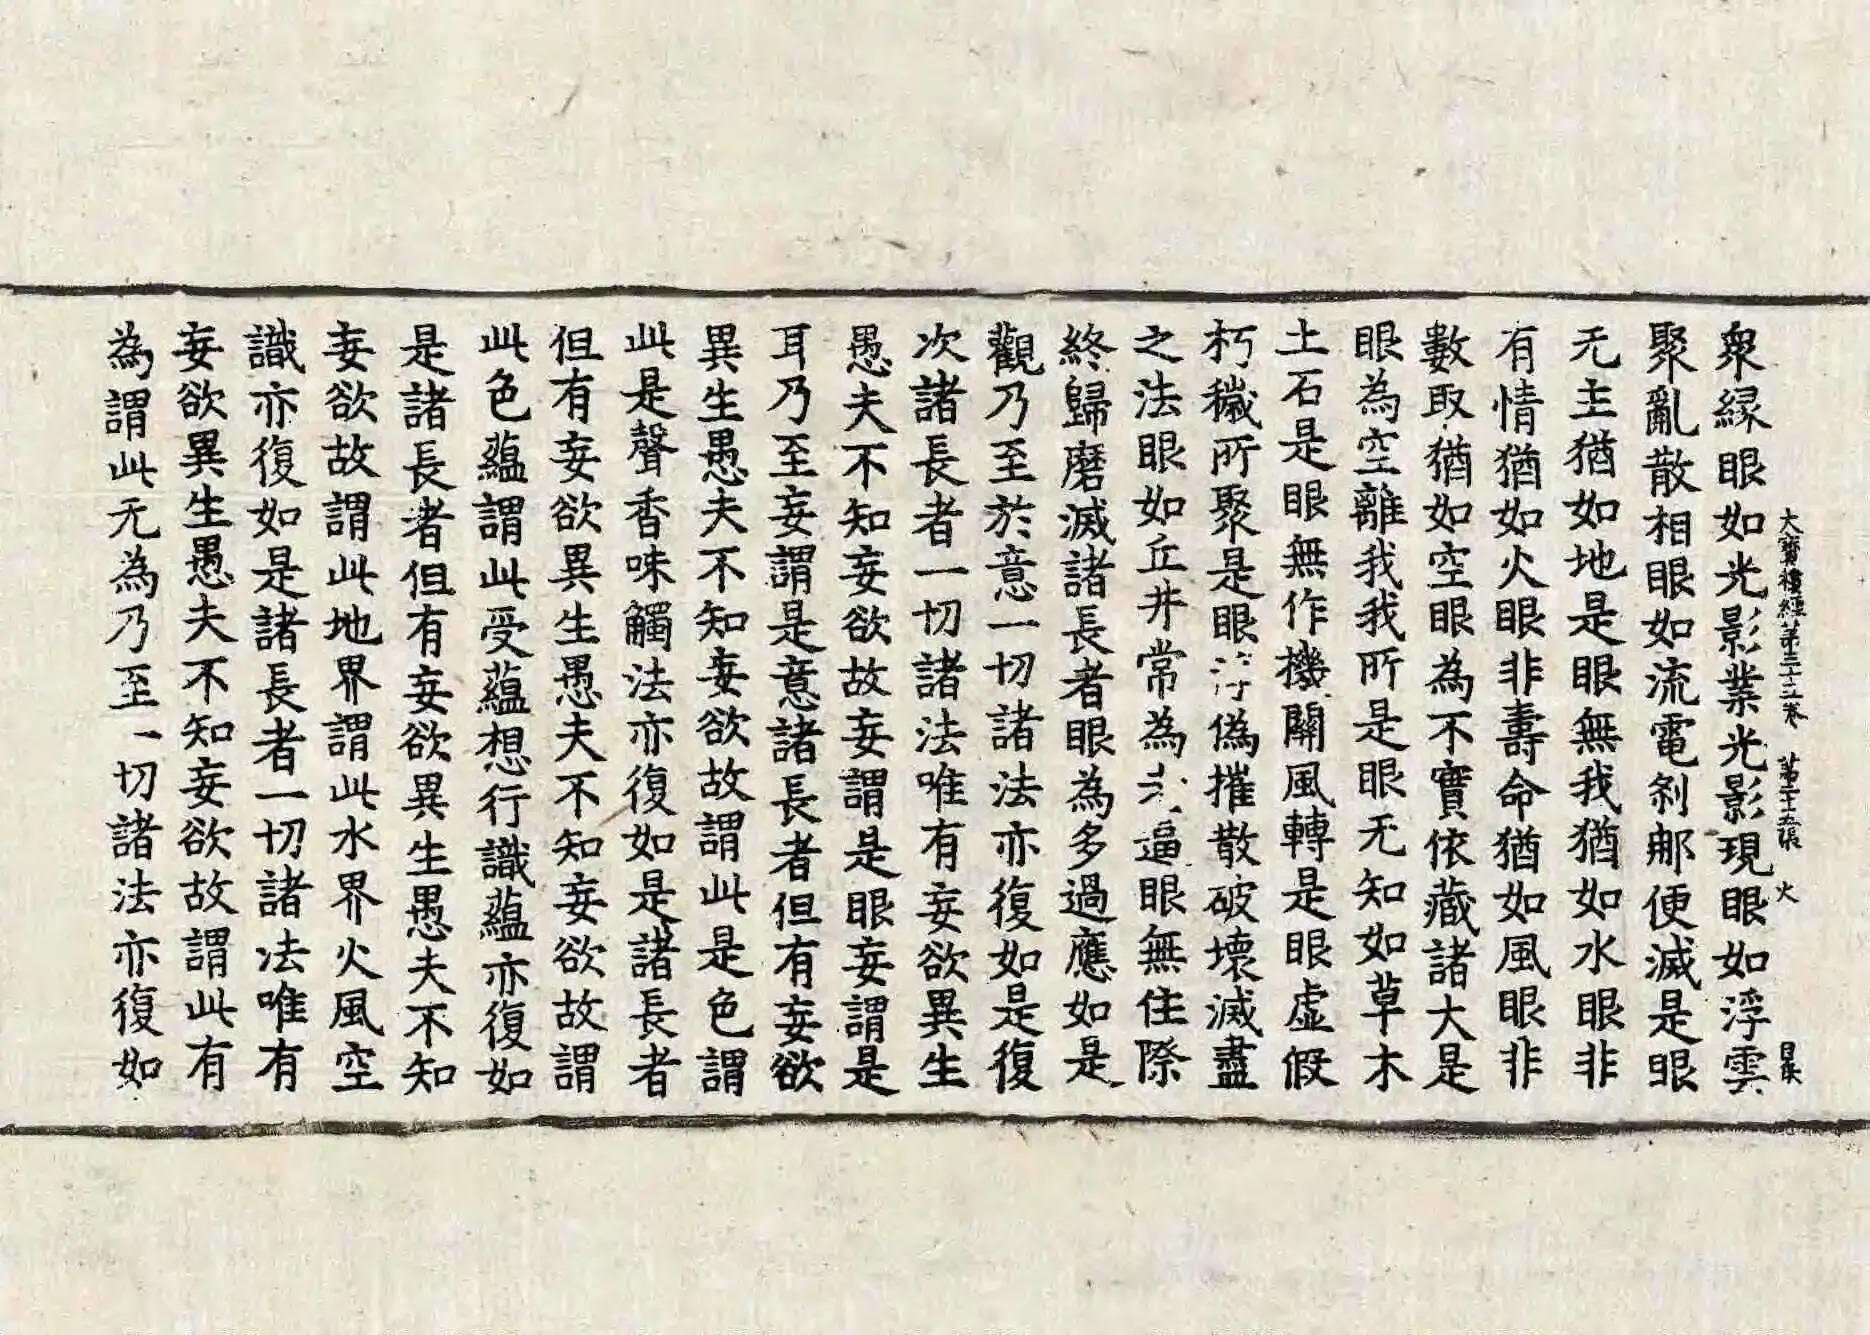 大寶積經第三十五卷 第二十五張 火
衆緣眼如光影業光影現眼如浮雲
聚亂散相眼如流電刹那便滅是眼
无主猶如地是眼無我猶如水眼非
有情猶如火眼非壽命猶如風眼非
數取猶如空眼為不實依藏諸大是
眼為空離我我所是眼无知如草木
土石是眼無作機關風轉是眼虛假
朽穢所聚是眼浮偽摧散破壞滅盡
之法眼如丘井常為逼眼無住際
終歸磨滅諸長者眼為多過應如是
觀乃至於意一切諸法亦復如是復
次諸長者一切諸法唯有妄欲異生
愚夫不知妄欲故妄謂是眼妄謂是
耳乃至妄謂是意諸長者但有妄欲
異生愚夫不知妄欲故謂此是色謂
此是聲香味觸法亦復如是諸長者
但有妄欲異生愚夫不知妄欲故謂
此色蘊謂此受蘊想行識蘊亦復如
是諸長者但有妄欲異生愚夫不知
妄欲故謂此地界謂此水界火風空
識亦復如是諸長者一切諸法唯有
妄欲異生愚夫不知妄欲故謂此有
為謂此无為乃至一切諸法亦復如